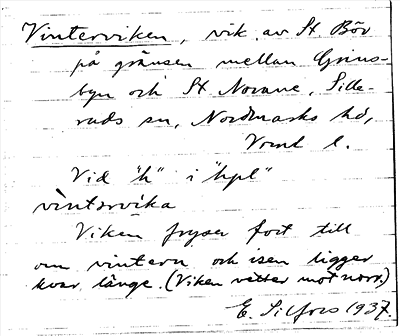 Vinterviken, vik av St Bör
på gränsen mellan Grins-
byn och St Norane, Sille-
ruds sn, Nordmarks hd,
Vrml l.
Vid "h" i "hpl"
vìntərvika
Viken fryser fort till
om vintern och isen ligger
kvar länge. (Viken vetter mot norr.)
E. Silfors 1937